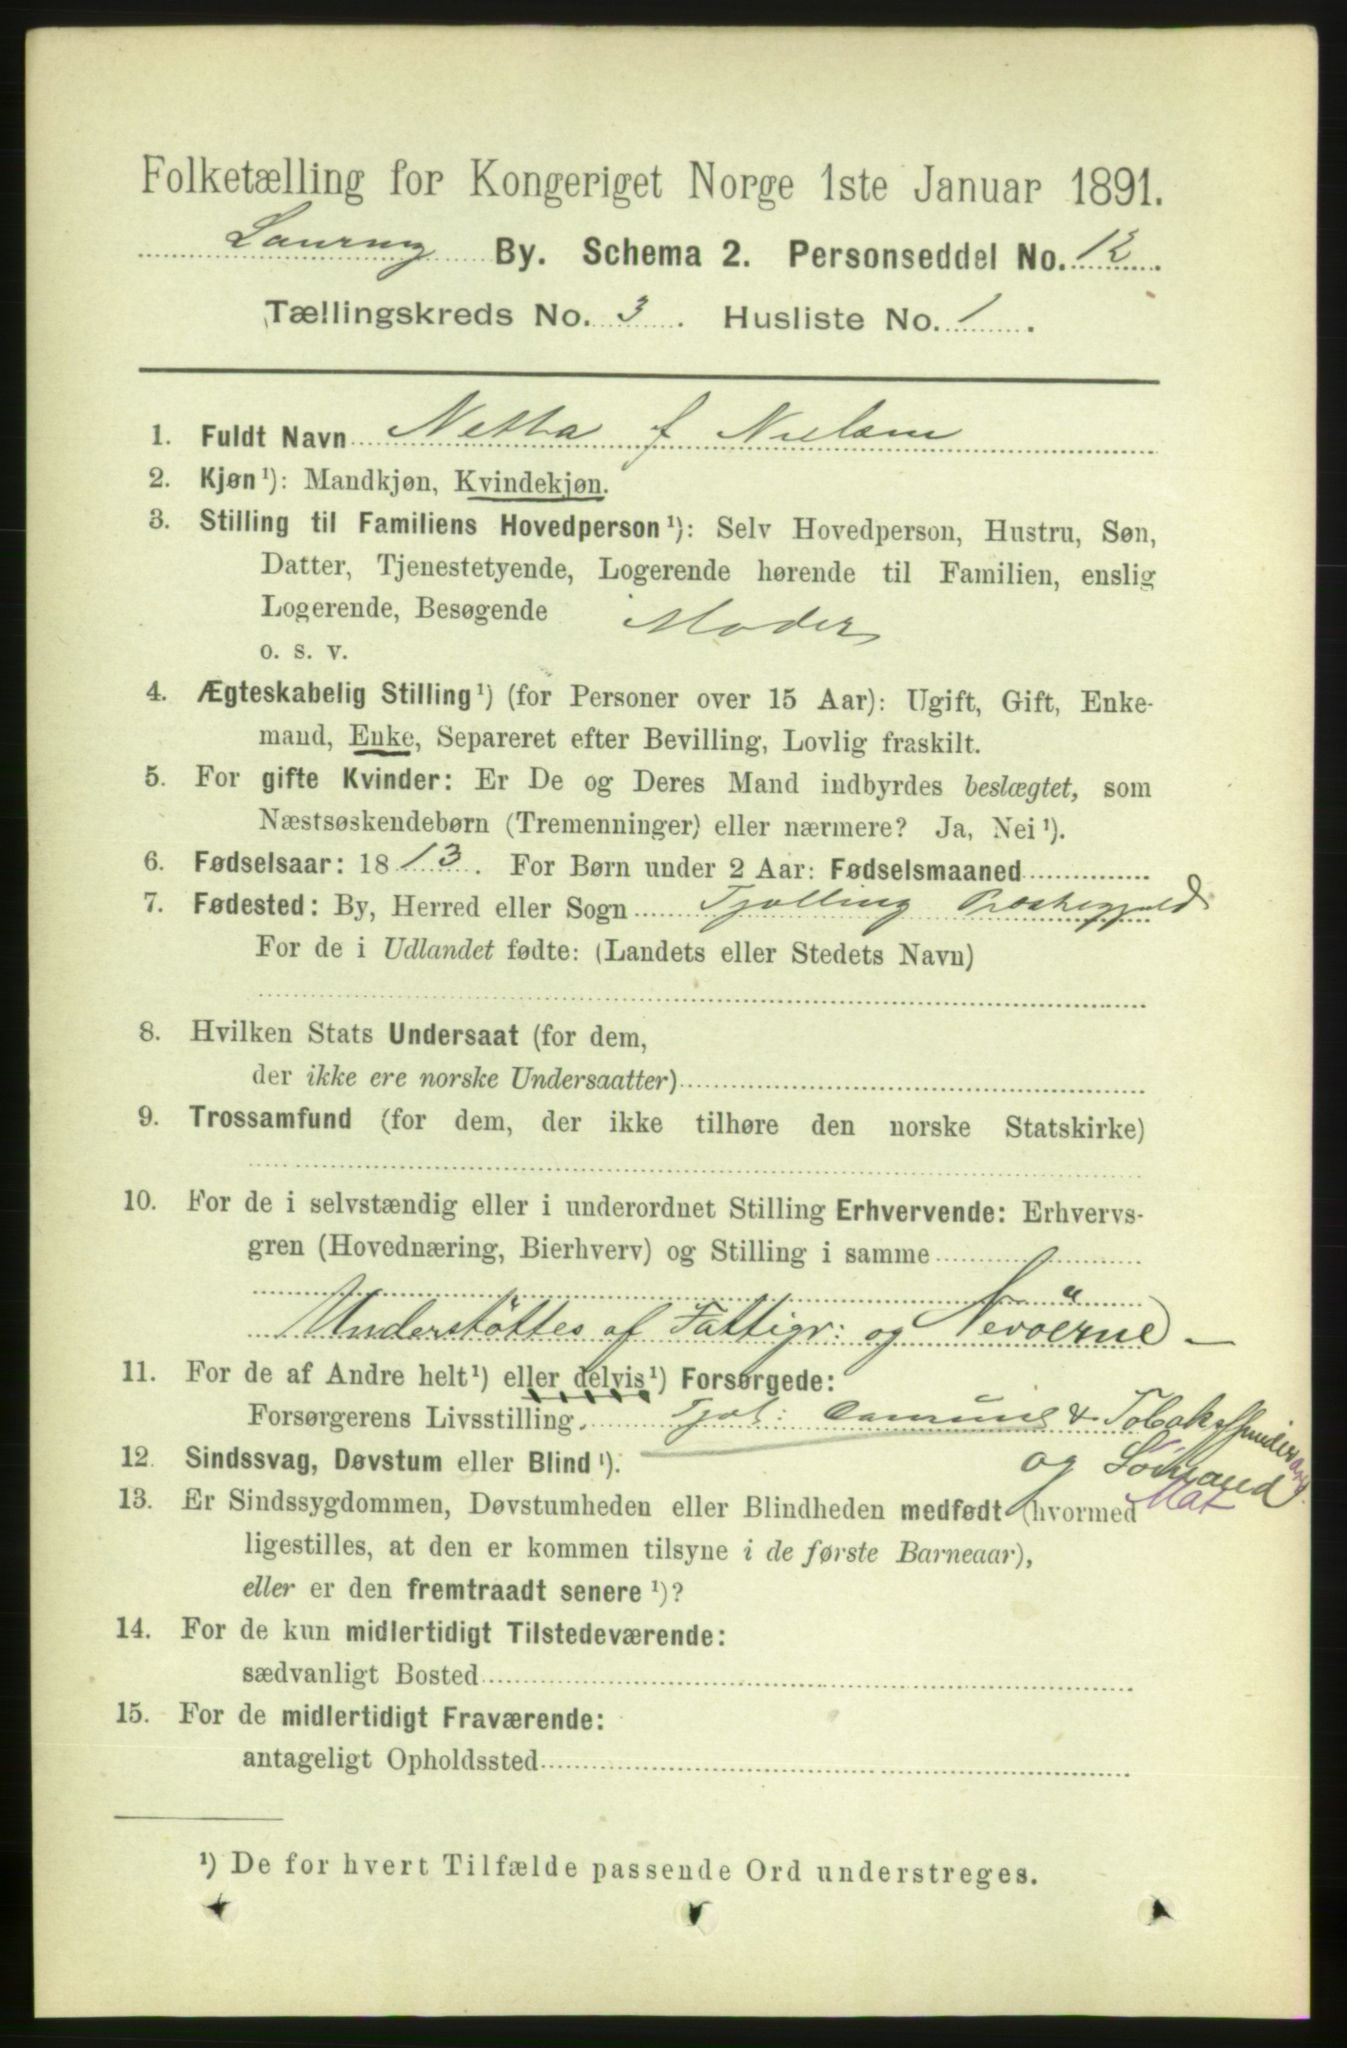 Folketælling for Kongeriget Norge 1ste Januar 1891.
Laurvig By. Schema 2. Personseddel No. 12.
Tællingskreds No. 3. Husliste No. 1.
1. Fuldt Navn Netta f Nielsen
2. Kjøn ¹): Mandkjøn, Kvindekjøn.
3. Stilling til Familiens Hovedperson ¹): Selv Hovedperson, Hustru, Søn,
Datter, Tjenestetyende, Logerende hørende til Familien, enslig
Logerende, Besøgende Moder
o. s. v.
4. Ægteskabelig Stilling ¹) (for Personer over 15 Aar): Ugift, Gift, Enke-
mand, Enke, Separeret efter Bevilling, Lovlig fraskilt.
5. For gifte Kvinder: Er De og Deres Mand indbyrdes beslægtet, som
Næstsøskendebørn (Tremenninger) eller nærmere? Ja, Nei ¹).
6. Fødselsaar: 1813. For Børn under 2 Aar: Fødselsmaaned
7. Fødested: By, Herred eller Sogn Tjølling Præstegjeld
For de i Udlandet fødte: (Landets eller Stedets Navn)
8. Hvilken Stats Undersaat (for dem,
der ikke ere norske Undersaatter)
9. Trossamfund (for dem, der ikke tilhøre den norske Statskirke)
10. For de i selvstændig eller i underordnet Stilling Erhvervende: Erhvervs-
gren (Hovednæring, Bierhverv) og Stilling i samme
Understöttes af Fattigv: og
11. For de af Andre helt ¹) eller delvis ¹) Forsørgede:
Forsørgerens Livsstilling Tjøl: & Tobakspinder
og Sömand
Mat
12. Sindssvag, Døvstum eller Blind ¹).
13. Er Sindssygdommen, Døvstumheden eller Blindheden medfødt (hvormed
ligestilles, at den er kommen tilsyne i de første Barneaar),
eller er den fremtraadt senere ¹)?
14. For de kun midlertidigt Tilstedeværende:
sædvanligt Bosted
15. For de midlertidigt Fraværende:
antageligt Opholdssted
¹) De for hvert Tilfælde passende Ord understreges.